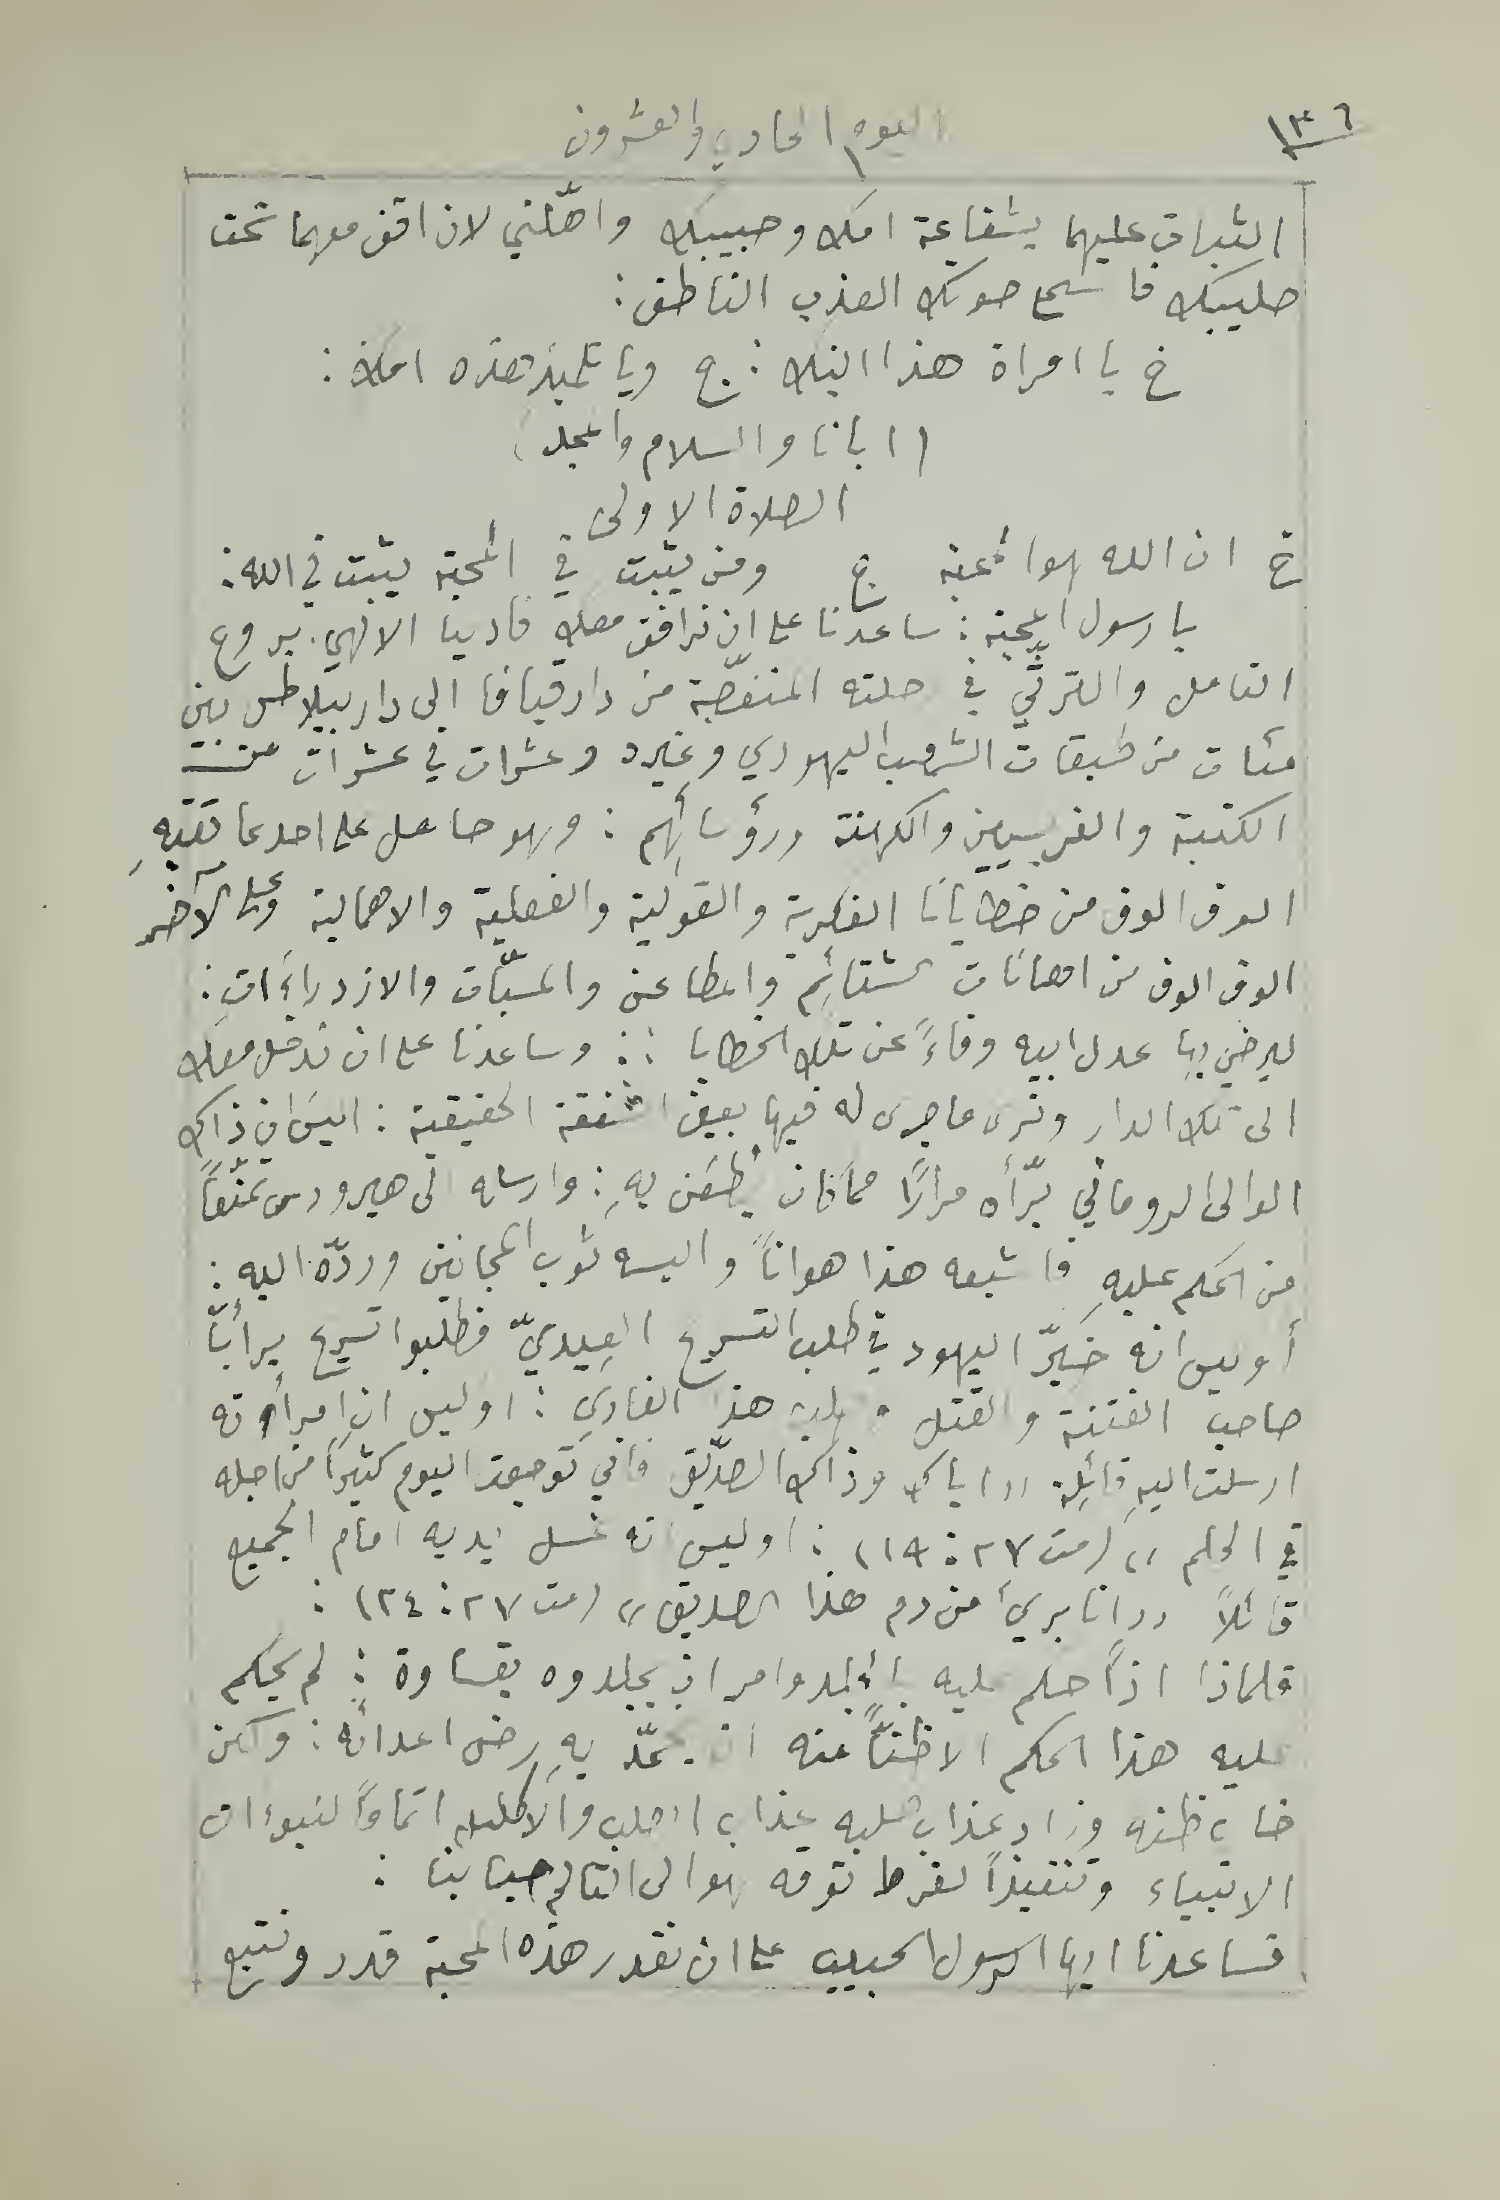 ١٣٦
اليوم الحادي والعشرون
الثبات عليهما بشفاعة امك وحبيبك واهّلني لان اقف معهما تحت
صليبك فاسمع صوتك العذب الناطق :
خ يا امراة هذا ابنك : ج ويا تلميذ هذه امك :
(ابانا والسلام والمجد)
الصلاة الاولى
خ ان الله هو المحبة ج ومن يثبت في المحبة يثبت في الله :
يا رسول المحبة : ساعدنا على ان نرافق معك فادينا الالهي بروح
التامل والترثّي في حلته المنغصّة من دار قيافا الى دار بيلاطس بين
مئات من طبقات الشعب اليهودي وغيره وعشرات في عشرات من
الكتبة والفريسيين والكهنة ورؤسائِهم : وهو حامل على احد عاتقَيّهِ
الوف الوف من خطايانا الفكرية والقولية والفعلية والاهمالية وعلى الآخر
الوف الوف من اهانات الشتائِم والمطاعن والمسبّات والازدراءَاتِ :
ليرضي بها عدل ابيه وفاءً عن تلك الخطايا : وساعدنا على ان ندخل معك
الى تلك الدار ونرى ما جرى له فيها بعين الشفقة الحقيقية : اليسَ ان ذاك
الوالى الروماني برّأه مرارًا مما كان يُطعَن بهِ : وارسله الى هيرودس تمنّعاً
من الحكم عليهِ فاشبعه هذا هواناً والبسه ثوب المجانين وردّه اليه :
أو ليس انه خيَّر اليهود في طلب التسريح العِيديّ فطلبوا تسريح برأبّا
صاحب الفتنة والقتل وصلب هذا الفادي : اوليس ان امرأته
ارسلت اليهِ قائلة ,, اياك وذاك الصدّيق فاني توجعت اليوم كثيرًا من اجله
في الحلم ,, (مت ٢٧ : ١٩) : اوليس انه غسل يديه امام الجميع
قائلاً ,, انا بريء من دم هذا الصديق ,, (مت ٢٧ : ٢٤) :
فلماذا اذاً حكم عليه بالجلد وامر ان يجلدوه بقساوة : لم يحكم
عليه هذا الحكم الا ظنّاً منه ان بهِ رضى اعدائه : ولكن
خاب ظنه وزاد عذاب عذاب الصلب والاكليل اتماماً لنبوءات
الانبياء وتنفيذاً لفرط توقه هو الى التالم حبا بنا :
فساعدنا ايها الرسول الحبيب على ان نقدر هذه المحبة قدر ونتبع